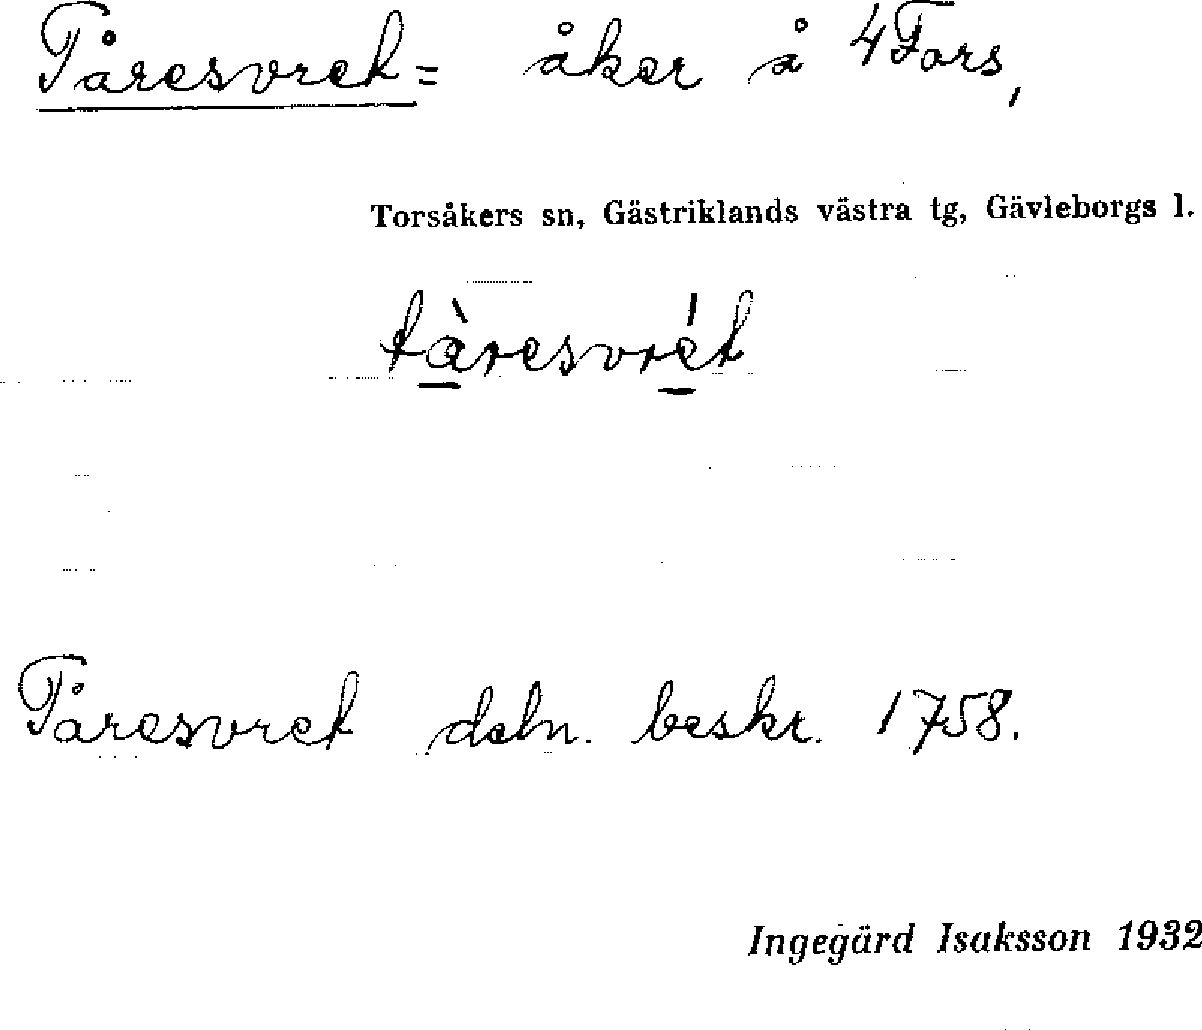 Tåresvret = åker å 4 Fors,
Torsåkers sn, Gästriklands västra tg, Gävleborgs l.
tàresvrét
Tåresvret deln. beskr. 1758.
Ingegärd Isaksson 1932